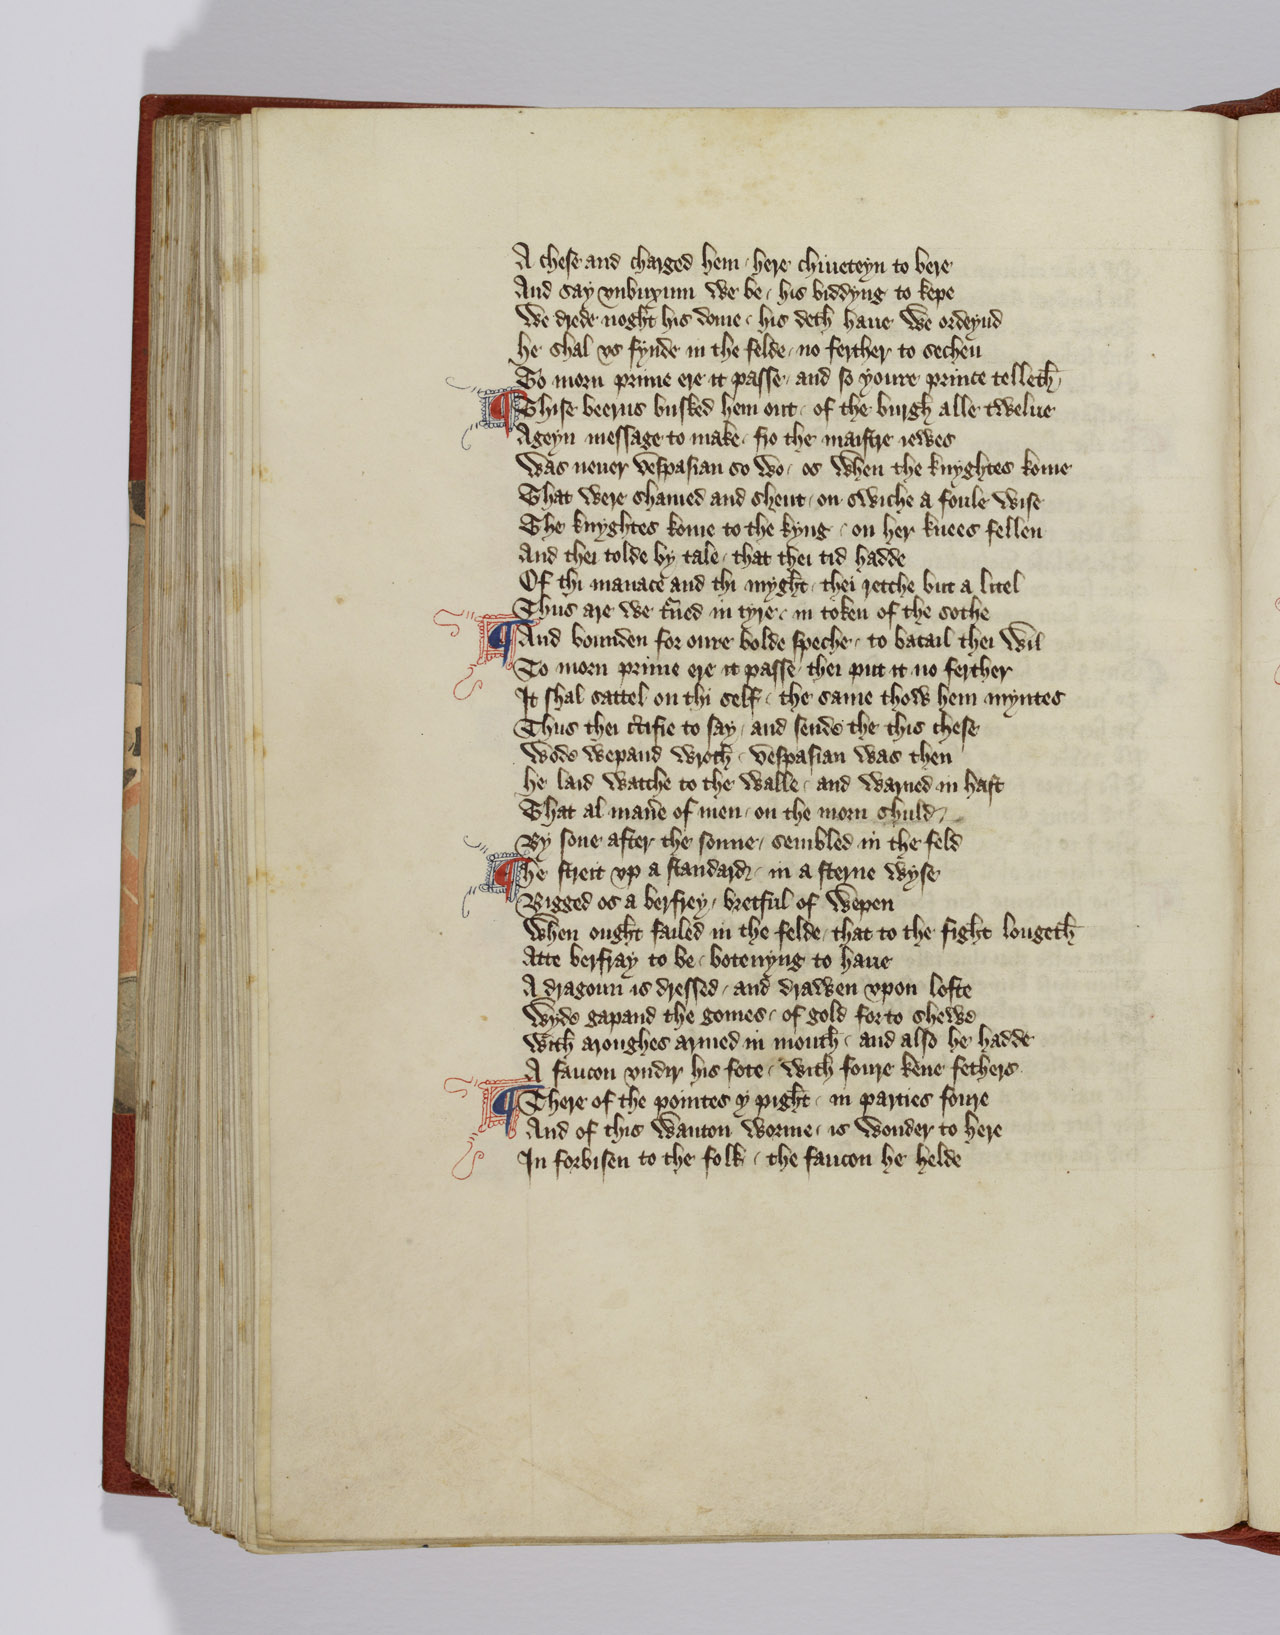 A chese and charged hem / here chiueteyn to bere
And say vnbuxum we be / his biddyng to kepe
We drede noght his dome / his deth haue we ordeynd
he shal vs fynde in the felde / no ferther to sechen
To morn prime ere it passe / and so youre prince telleth /
¶ Thise beerns busked hem out / of the burgh alle twelue
Ageyn message to make / fro the maistre iewes
Was neuer vespasian so wo / os when the knyghtes kome
That were shamed and shent / on swiche a foule wise
The knyghtes kome to the kyng / on her knees fellen
And thei tolde by tale / that thei tid hadde
Of thi manace and thi myght / thei retche but a litel
Thus are we t'ned in tyre / in token of the sothe
¶ And bounden for oure bolde speche / to batail thei wil
To morn prime ere it passe / thei put it no ferther
It shal sattel on thi self / the same thow hem myntes
Thus thei c'tifie to say / and sende the this chese
Wode wepand wroth / vespasian was then
he laid watche to the walle / and warned in hast
That al man'e of men / on the morn shuld /
By sone after the sonne / sembled in the feld
¶ he streit vp a standard / in a sterne wyse
Bigged os a berfrey / bretful of wepen
When ought failed in the felde / that to the fight longeth
Atte berfray to be / botenyng to haue
A dragoun is dressed / and drawen vpon lofte
Wyde gapand the gomes / of gold for to shewe
With aroughes armed in mouth / and also he hadde
A faucon vndir his fote / with foure kene fethers
¶ There of the pointes y pight / in parties foure
And of this wanton worme / is wonder to here
In forbisen to the folk / the faucon he helde